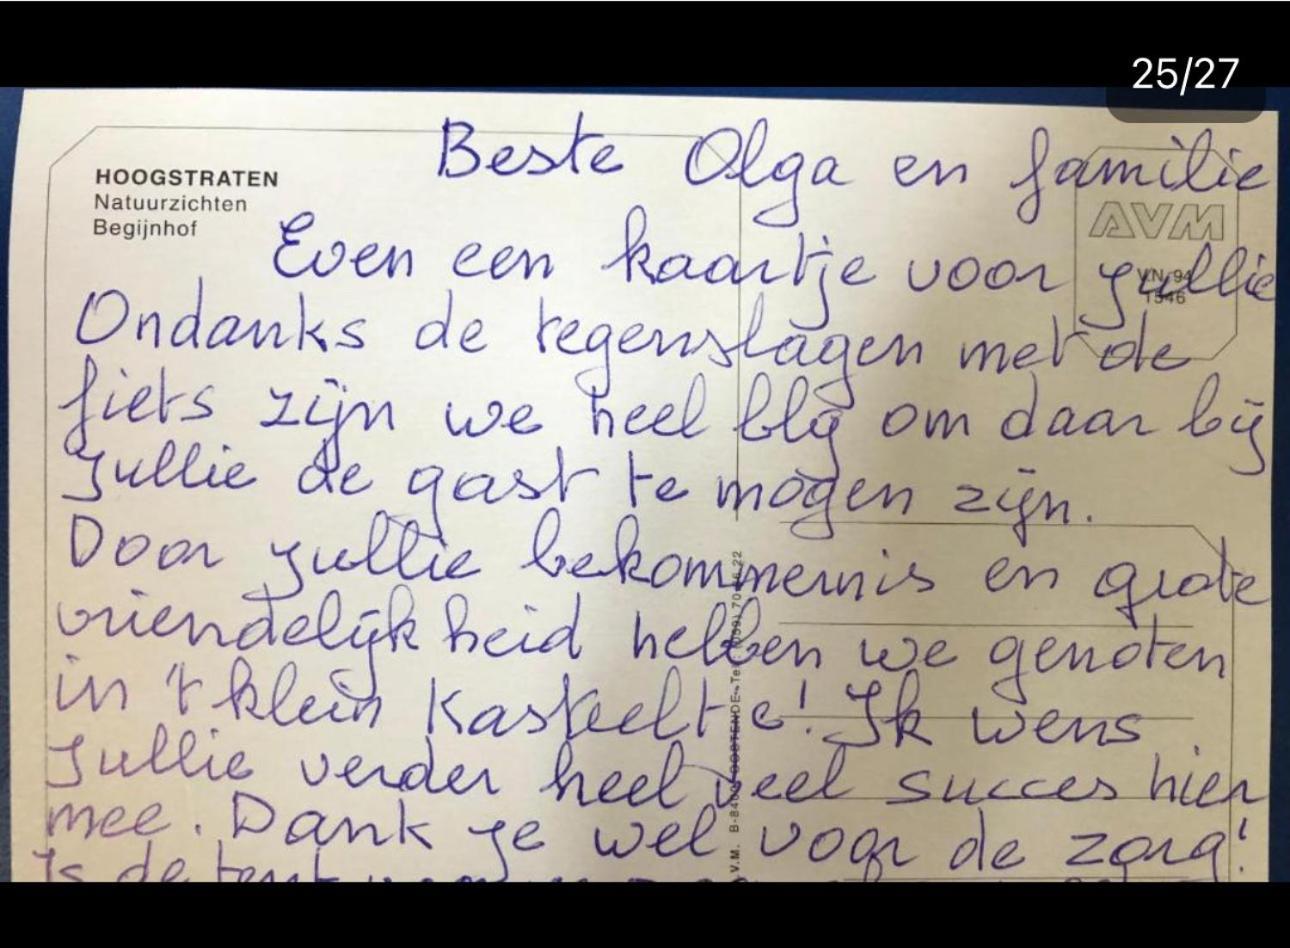 25/27
HOOGSTRATEN
Natuurzichten
Begijnhof
AVM
VN-94
1546
Beste Olga en familie
Even een kaartje voor jullie
Ondanks de tegenslagen met de
fiets zijn we heel blij om daar bij
jullie de gast te mogen zijn.
Door jullie bekommernis en grote
vriendelijkheid hebben we genoten
in 't klein Kasteeltje! Ik wens
jullie verder heel veel succes hier
mee. Dank je wel voor de zorg!
Is de